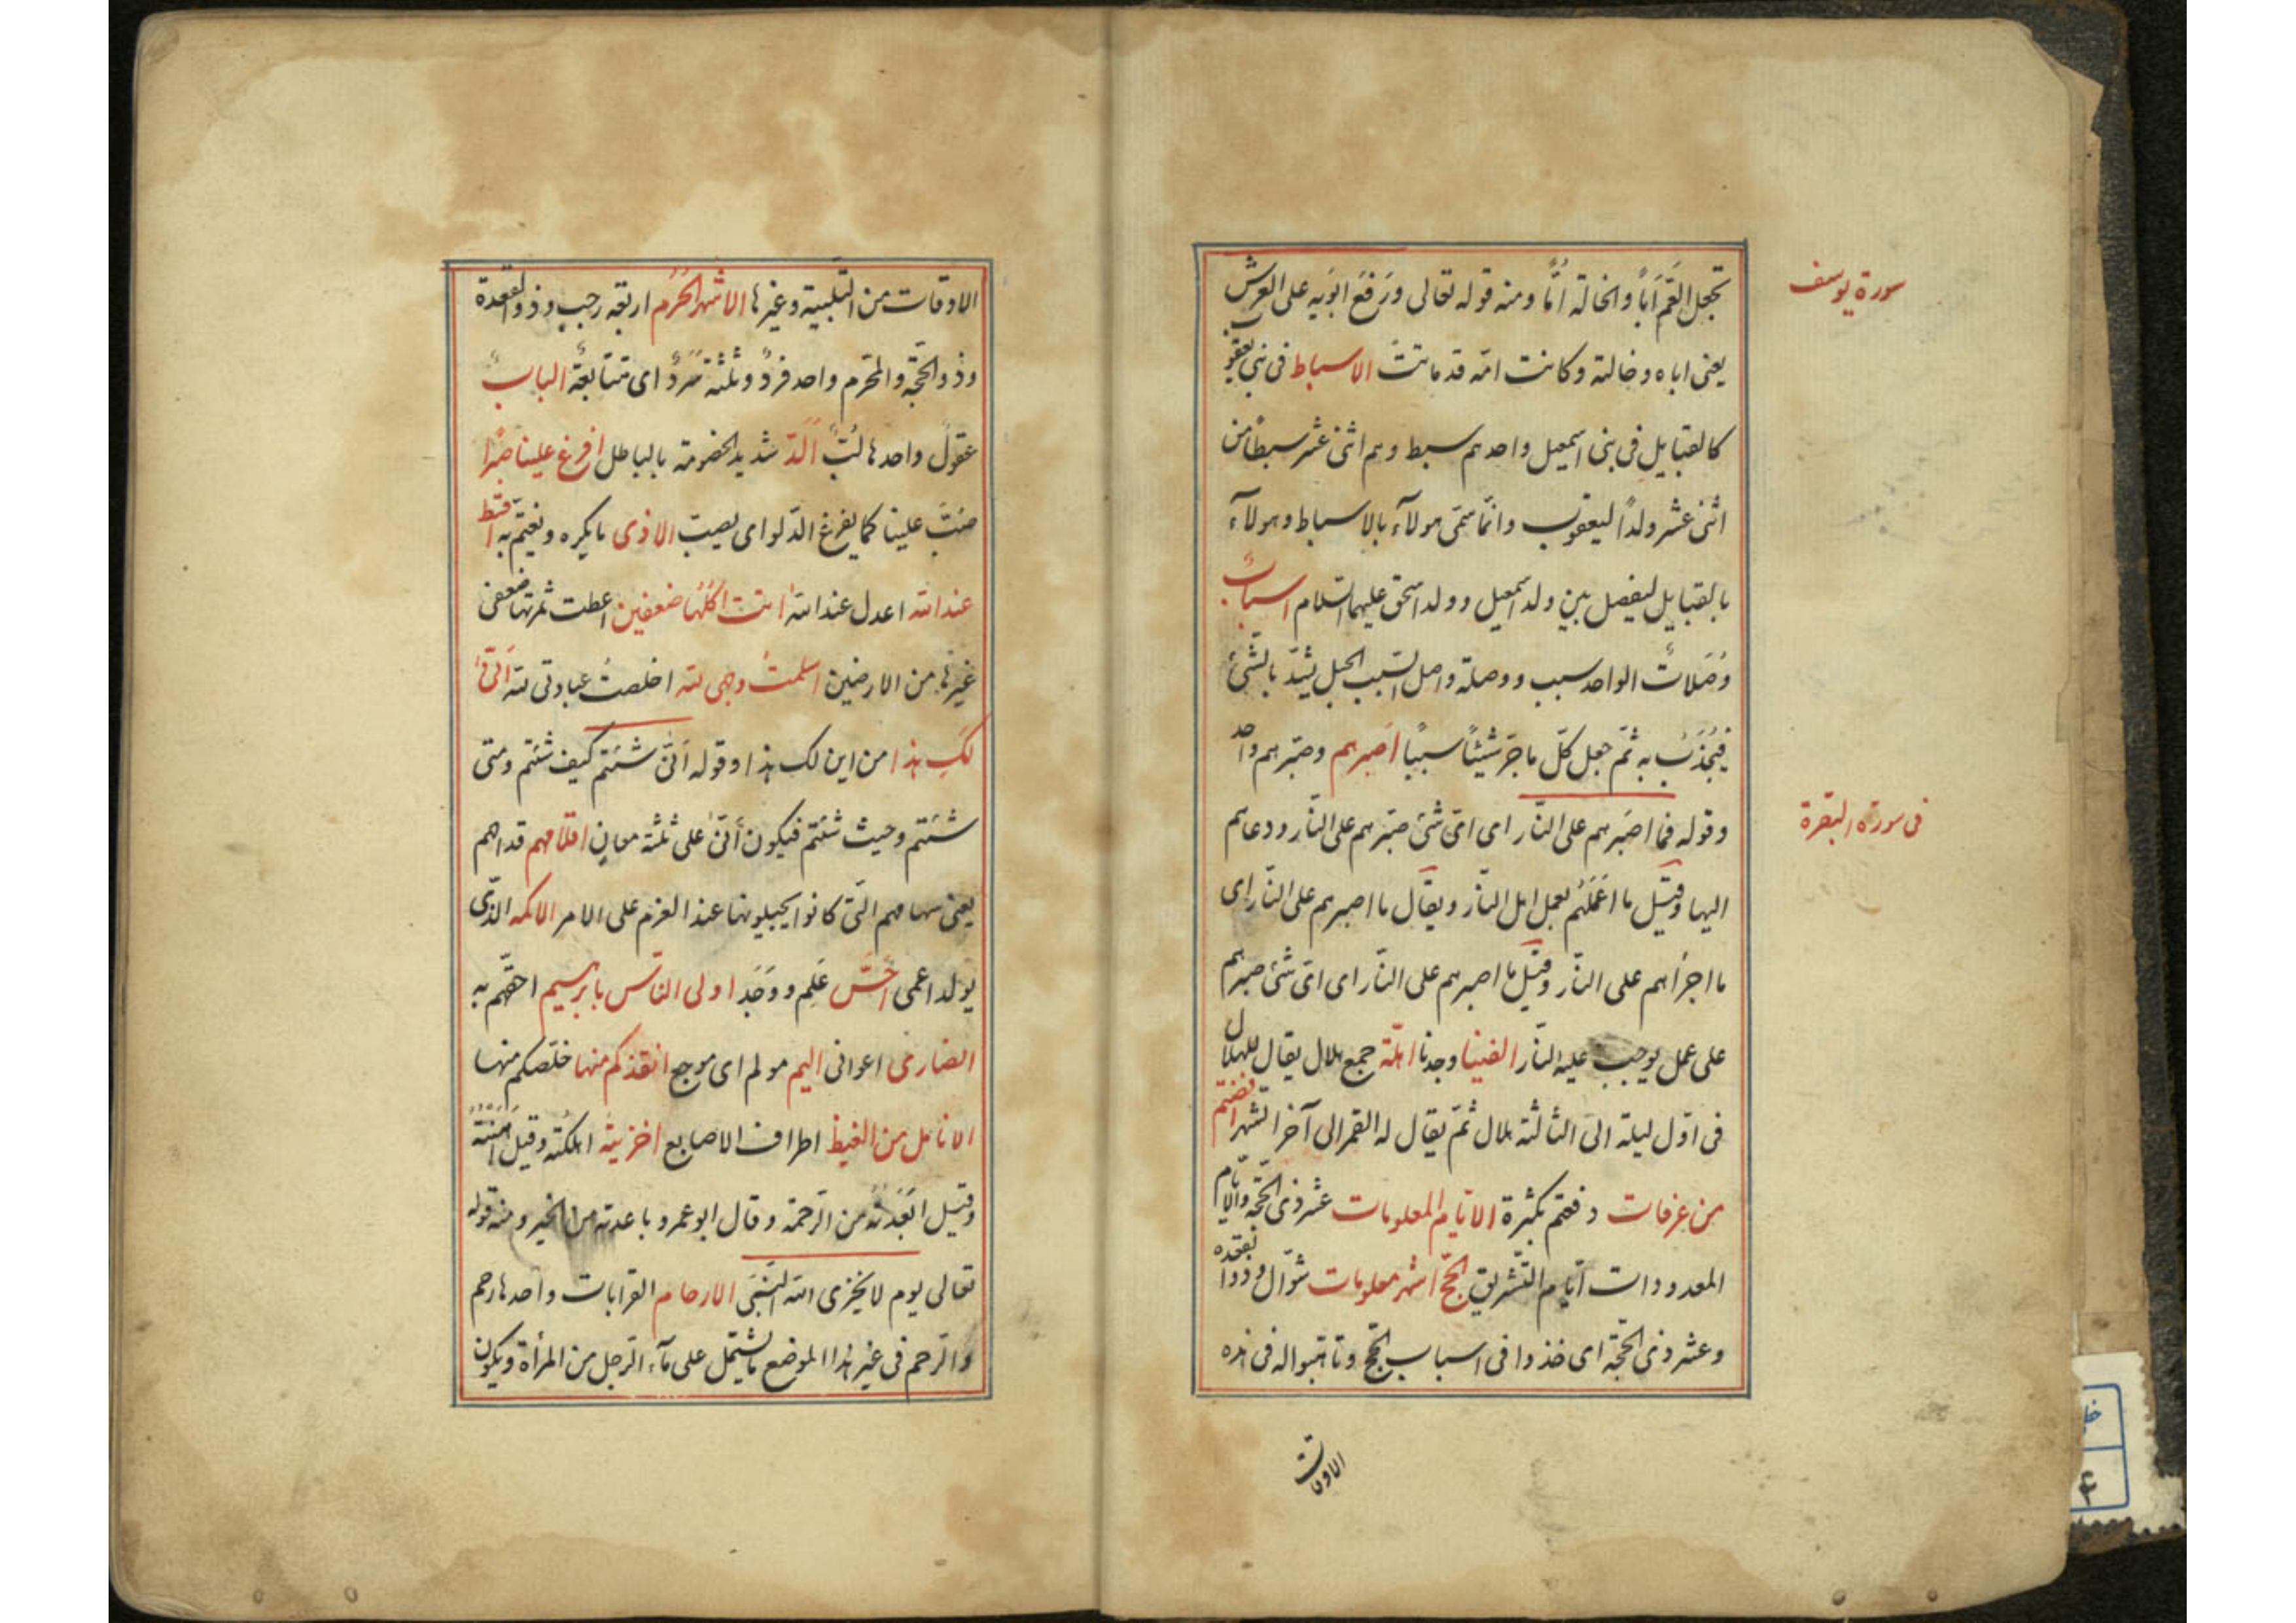 تجعل العَمّ اَبًا والخالة اُمًّا ومنه قوله تعالى ورَفَعَ ابَوَيه على العرش
سورة يوسف
يعنى اباه وخالته وكانت امّه قد ماتتْ الاسباط فى بنى يعقوب
كالقبايل فى بنى اسمعيل واحدهم سبط وهم اثنى عشر سبطًا من
اثنى عشر ولدًا ليعقوب وانّما سمّى هولآء بالاسباط وهولآء
بالقبايل ليفصل بين ولد اسمعيل وولد اسحق عليهما السّلام اسبابٌ
وُصَلاتٌ الواحد سبب ووصلة واصل السّبب الحبل يشدّ بالشّئ
فيُجْذَبُ به ثمّ جعل كلّ ما جرّ شيئًا سببًا اَصبرهم وصبّرهم واحد
وقوله فما اصبَرهم على النّار اى اىّ شئ صبّرهم على النّار ودعاهم
فى سورة البقرة
اليها وقيل ما اَعْمَلَهُم بعمل اهل النّار ويقال ما اصبرهم على النّار اى
ما اجرأهم على النّار وقيل ما اصبرهم على النّار اى اىّ شئ صبرهم
على عمل يوجب عليه النّار الفينا وجدنا اهلّة جمع هلال يقال للهلال
فى اوّل ليلة الى الثالثة هلال ثمّ يقال له القمر الى آخر الشّهر افضتم
من عرفات دفعتم بكثرة الايّام المعلومات عشر ذى الحجّة والايّام
المعدودات ايّام التّشريق الحجّ اشهر معلومات شوّال وذو القعده
وعشر ذى الحجّة اى خذوا فى اسباب الحجّ وتاهّبوا له فى هذه
الاوقات
الاوقات من التّلبية وغيرها الاشهر الحُرُم اربعة رجب وذو القعدة
وذو الحجّة والمحرّم واحد فردٌ وثلثة سَرْدٌ اى متتابعةٌ الباب
عقول واحدها لُبّ اَلدّ شديد الخصومة بالباطل افرغ علينا صبرًا
صُبّ علينا كما يفرغ الدّلو اى يصبّ الاذى ما يكره ويغتمّ به اقسط
عند الله اعدل عند الله اتت اكُلُها ضعفين اعطت ثمرتها ضعفى
غيرها من الارضين اسلمتُ وجهى لله اخلصتُ عبادتى لله اَنّى
لكِ هذا من اين لك هذا وقوله اَنّى شئتم كيف شئتم ومتى
شئتم وحيث شئتم فيكون أنّى على ثلثة معانٍ اقلامهم قداحهم
يعنى سهامهم الّتى كانوا يجيلونها عند العزم على الامر الاكمه الّذى
يولد اعمى احَسَّ عَلِم ووَجَد اولى النّاس بابرهيم احقّهم به
انصارى اعوانى اليم مولم اى موجع انقذكم منها خلّصكم منها
الانامل من الغيظ اطراف الاصابع اخزيته اهلكته وقيل اهَنْتَهُ
وقيل ابَعَدْتَهُ من الرّحمة وقال ابو عمرو باعدته من الخير ومنه قوله
تعالى يوم لا يخزى الله النّبىّ الارحام القرابات واحدها رحم
والرّحم فى غير هذا الموضع ما يشتمل على مآء الرّجل من المرأة ويكون